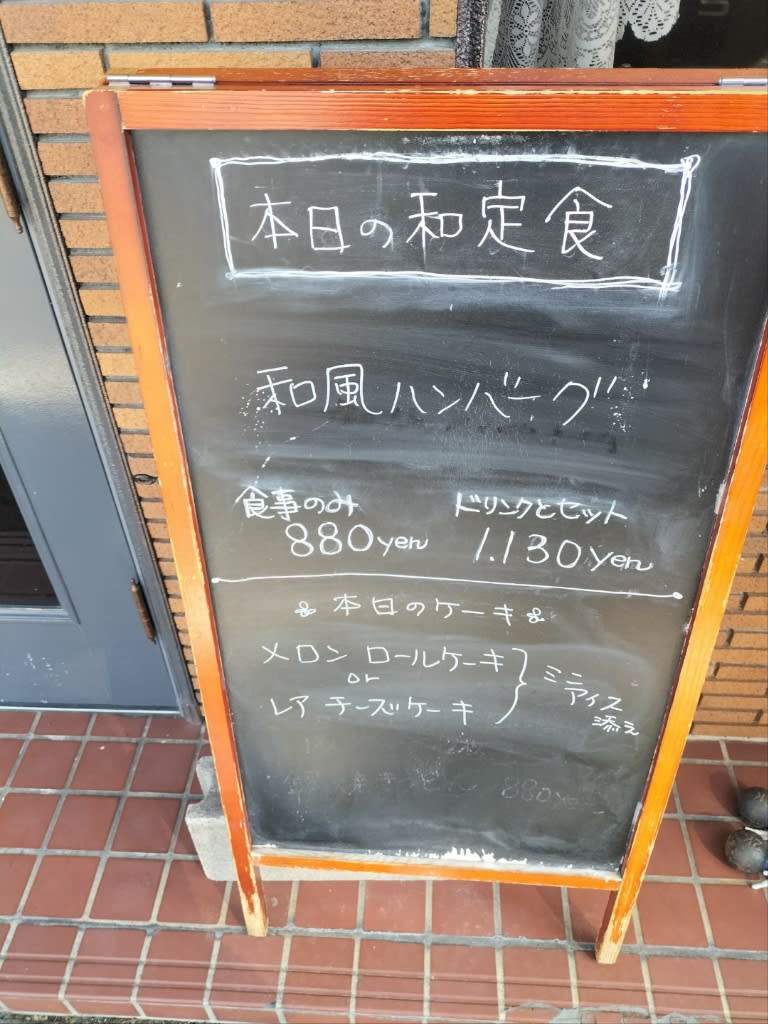 本日の和定食
和風ハンバーグ
食事のみ ドリンクとセット
880yen 1.130yen
本日のケーキ
メロン ロールケーキ
or
レア チーズケーキ
ミニ
アイス
添え
880yen